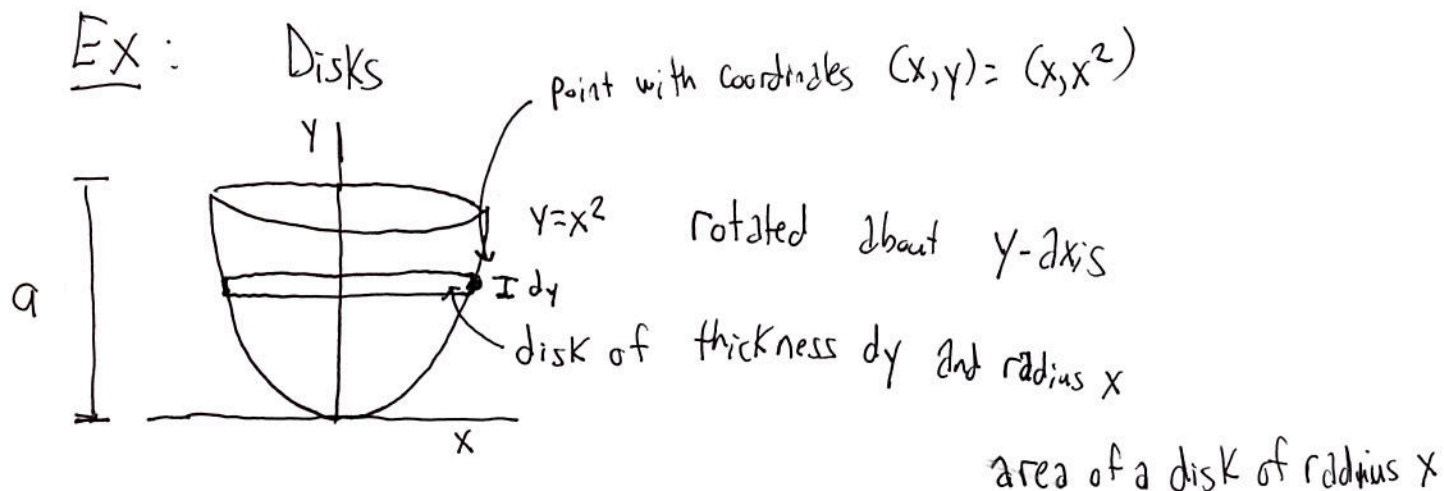 Ex: Disks
point with coordinates (x,y) = (x,x²)
Y
y=x² rotated about y-axis
a
I dy
disk of thickness dy and radius x
x
area of a disk of radius x